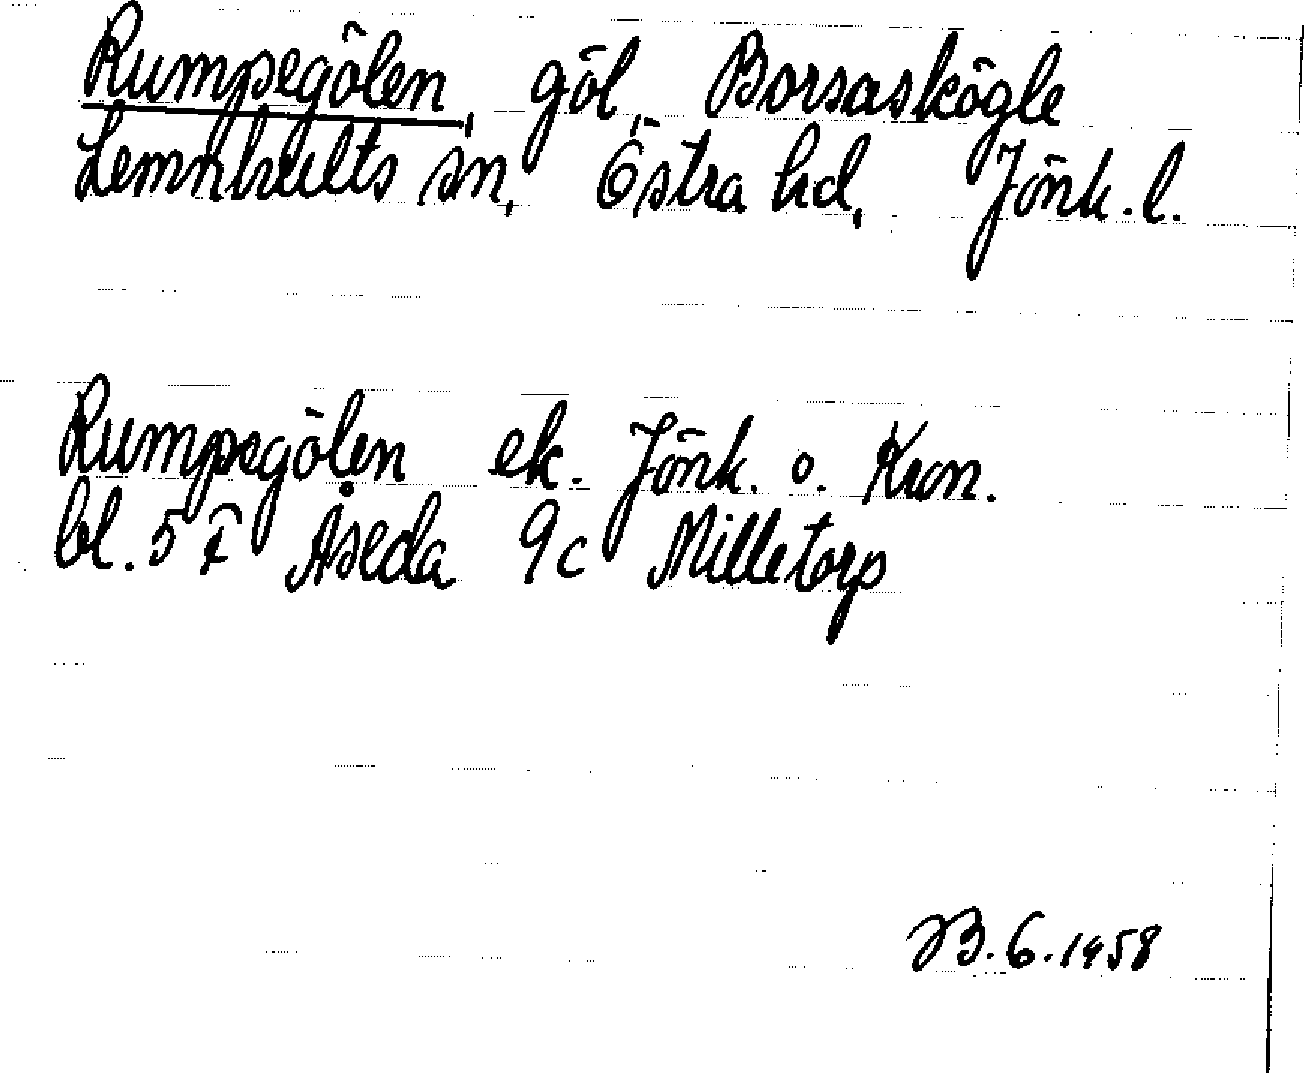 Rumpegölen, göl, Borsaskögle
Lemnhults sn, Östra hd, Jönk. l.
Rumpegölen ek. Jönk. o. Kron.
bl. 5 F Åseda 9c Milletorp
B. 6. 1958